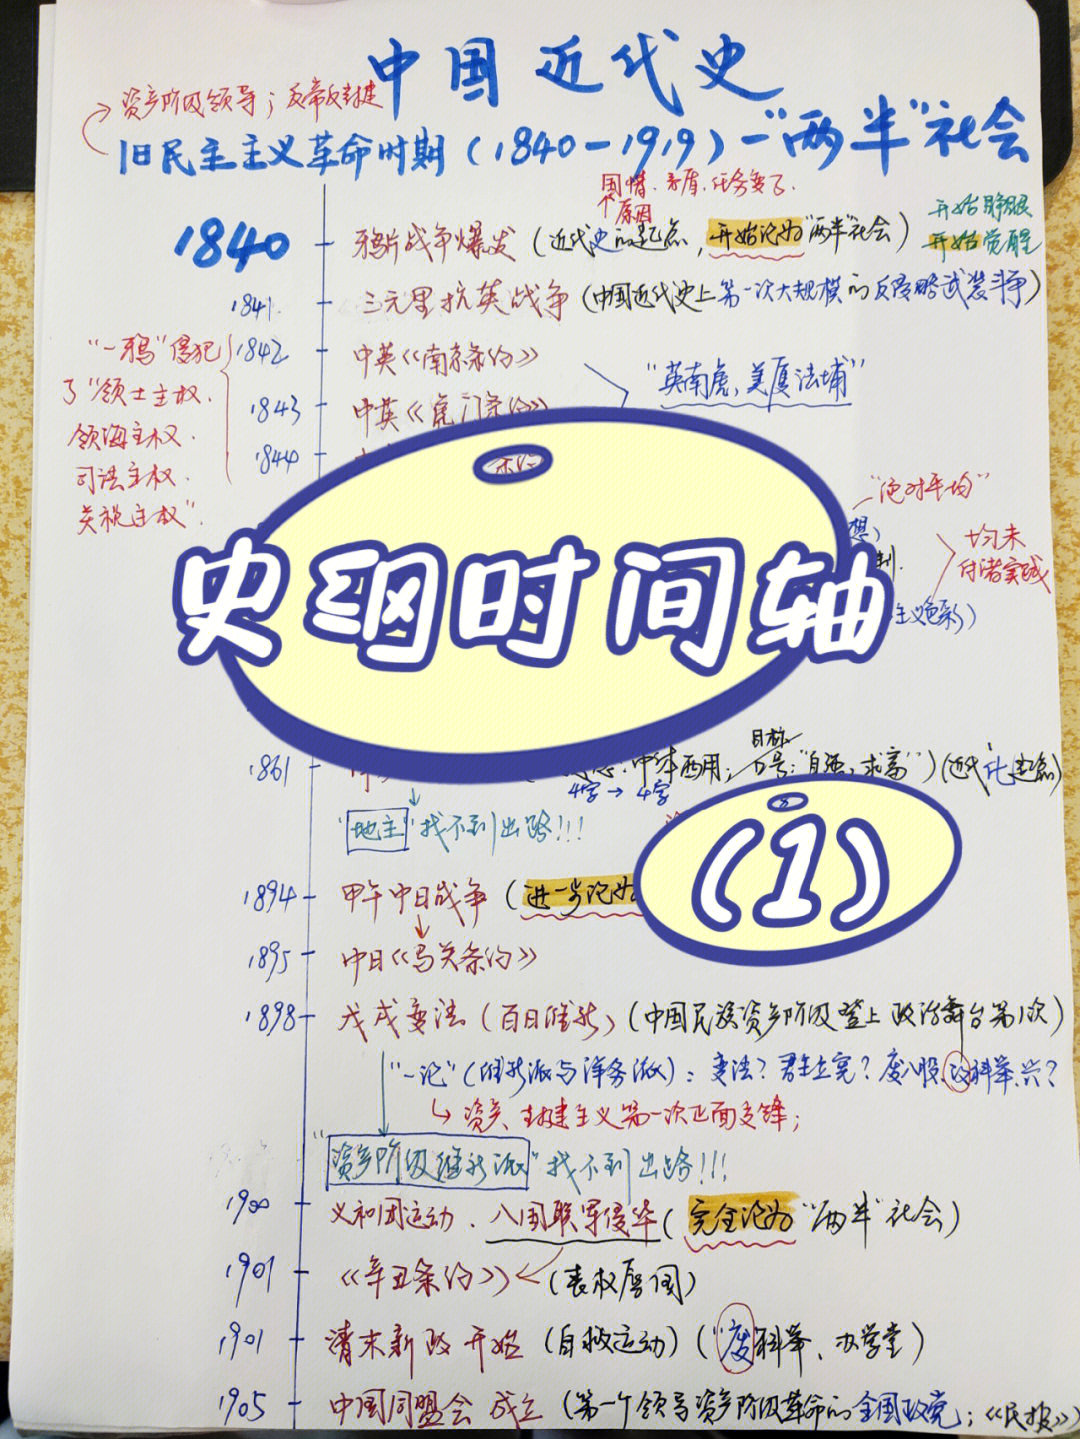 中国近代史
资产阶级领导；反帝反封建
旧民主主义革命时期（1840-1919）-"两半"社会
国情、矛盾、任务变了.
原因
开始睁眼
开始觉醒
1840 鸦片战争爆发（近代史的起点，开始沦为"两半"社会）
1841. 三元里抗英战争（中国近代史上第一次大规模的反侵略武装斗争）
"一鸦"侵犯
了"领土主权.
领海主权.
司法主权.
关税主权".
1842 中英《南京条约》
"英南虎，美厦法埔"
1843 中英《虎门条约》
1844
"绝对平均"
想）
制.
均未
付诸实践
主义色彩）
史纲时间轴
（1）
1861 中体西用；口号："自强，求富"）（近代化起点）
目标
4字→4字
"地主"找不到出路!!!
1894 甲午中日战争（进一步沦为
1895 中日《马关条约》
1898 戊戌变法（百日维新）（中国民族资产阶级登上政治舞台第1次）
"一论"（维新派与洋务派）：变法？君主立宪？废八股、改科举、兴？
资关、封建主义第一次正面交锋；
"资产阶级维新派"找不到出路!!!
1900 义和团运动、八国联军侵华（完全沦为"两半"社会）
1901 《辛丑条约》（丧权辱国）
1901 清末新政开始（自救运动）（"废"科举、办学堂）
1905 中国同盟会成立（第一个领导资产阶级革命的全国政党；《民报》）